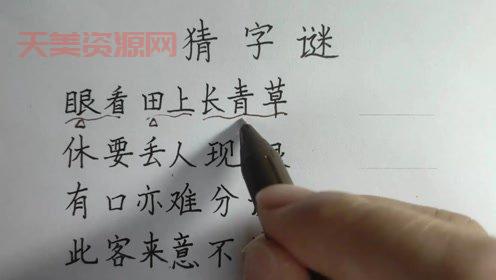 天美资源网
猜字谜
眼看田上长青草
休要丢人现
有口亦难分
此客来意不